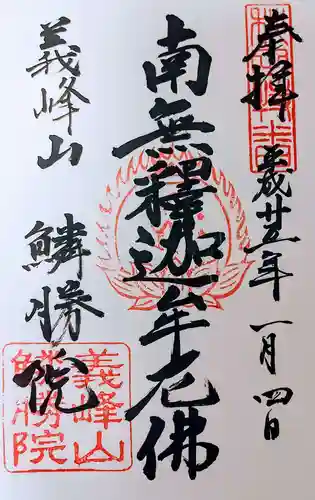 奉拝
平成廿五年一月四日
南無釋迦牟尼佛
義峰山
鱗勝院
義峰山
鱗勝院